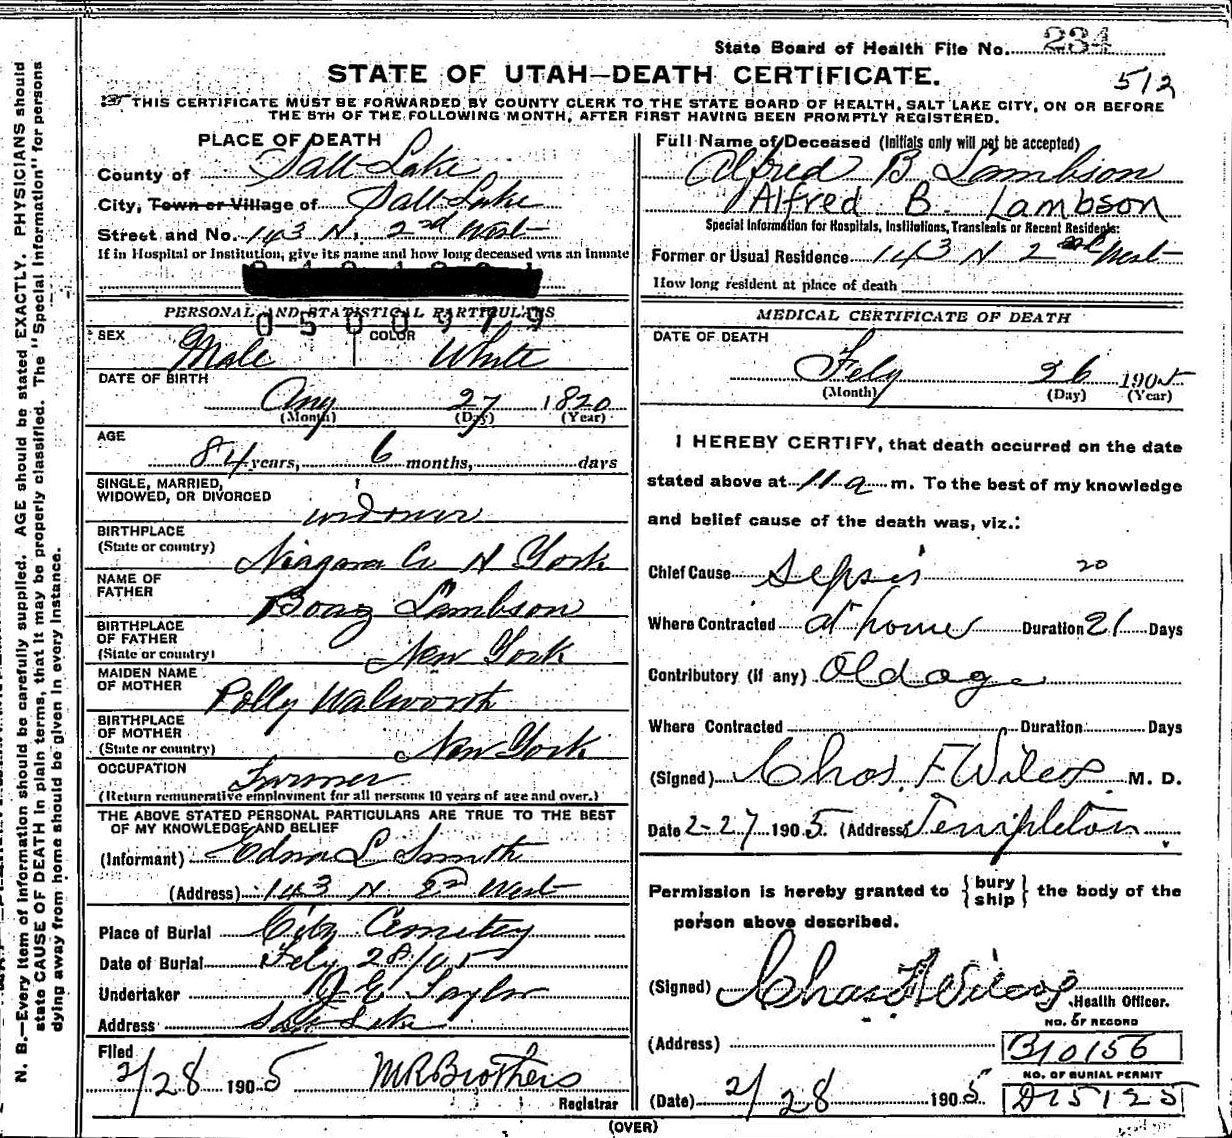 State Board of Health File No. 234
STATE OF UTAH—DEATH CERTIFICATE.
512
THIS CERTIFICATE MUST BE FORWARDED BY COUNTY CLERK TO THE STATE BOARD OF HEALTH, SALT LAKE CITY, ON OR BEFORE
THE 5TH OF THE FOLLOWING MONTH, AFTER FIRST HAVING BEEN PROMPTLY REGISTERED.
N. B.—Every item of information should be carefully supplied. AGE should be stated EXACTLY. PHYSICIANS should
state CAUSE OF DEATH in plain terms, that it may be properly classified. The "Special Information" for persons
dying away from home should be given in every instance.
PLACE OF DEATH
County of Salt Lake
City, Town or Village of Salt Lake
Street and No. 143 N. 2nd West
If in Hospital or Institution, give its name and how long deceased was an inmate
0500979
PERSONAL AND STATISTICAL PARTICULARS
SEX Male COLOR White
DATE OF BIRTH
Aug 27 1820
(Month) (Day) (Year)
AGE
84 years, 6 months, days
SINGLE, MARRIED,
WIDOWED, OR DIVORCED
widower
BIRTHPLACE
(State or country) Niagara Co N York
NAME OF
FATHER Boaz Lambson
BIRTHPLACE
OF FATHER
(State or country) New York
MAIDEN NAME
OF MOTHER Polly Walworth
BIRTHPLACE
OF MOTHER
(State or country) New York
OCCUPATION Farmer
(Return remunerative employment for all persons 10 years of age and over.)
THE ABOVE STATED PERSONAL PARTICULARS ARE TRUE TO THE BEST
OF MY KNOWLEDGE AND BELIEF
(Informant) Edna L Smith
(Address) 143 N 2d West
Place of Burial City Cemetery
Date of Burial Feby 28/05
Undertaker J E Taylor
Address Salt Lake
Filed
2/28 1905 M R Brothers
Registrar
Full Name of Deceased (Initials only will not be accepted)
Alfred B Lambson
Alfred B. Lambson
Special Information for Hospitals, Institutions, Transients or Recent Residents:
Former or Usual Residence 143 N 2nd West
How long resident at place of death
MEDICAL CERTIFICATE OF DEATH
DATE OF DEATH
Feby 26 1905
(Month) (Day) (Year)
I HEREBY CERTIFY, that death occurred on the date
stated above at 11 a m. To the best of my knowledge
and belief cause of the death was, viz.:
Chief Cause Sepsis 20
Where Contracted at home Duration 21 Days
Contributory (if any) Old age
Where Contracted Duration Days
(Signed) Chas. F Wilcox M. D.
Date 2-27 1905. (Address) Templeton
Permission is hereby granted to {bury ship} the body of the
person above described.
(Signed) Chas F Wilcox Health Officer.
(Address)
NO. OF RECORD
B10156
NO. OF BURIAL PERMIT
D15125
(Date) 2/28 1905
(OVER)